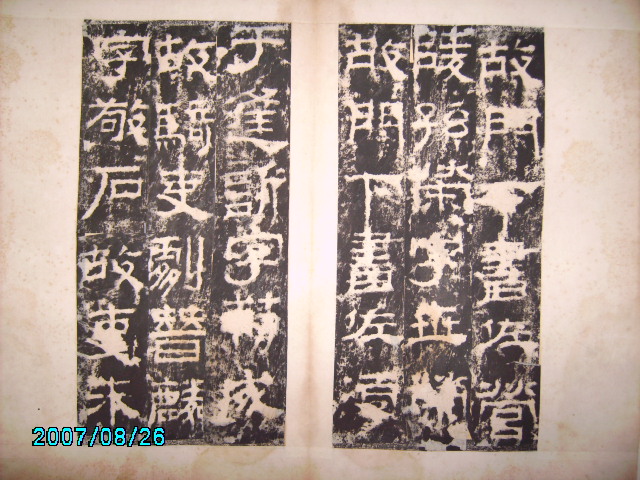 故門下書佐營
陵孫榮字
故門下書佐
于訢字成
故騎吏劇晉麟
字敬石故吏朱
2007/08/26